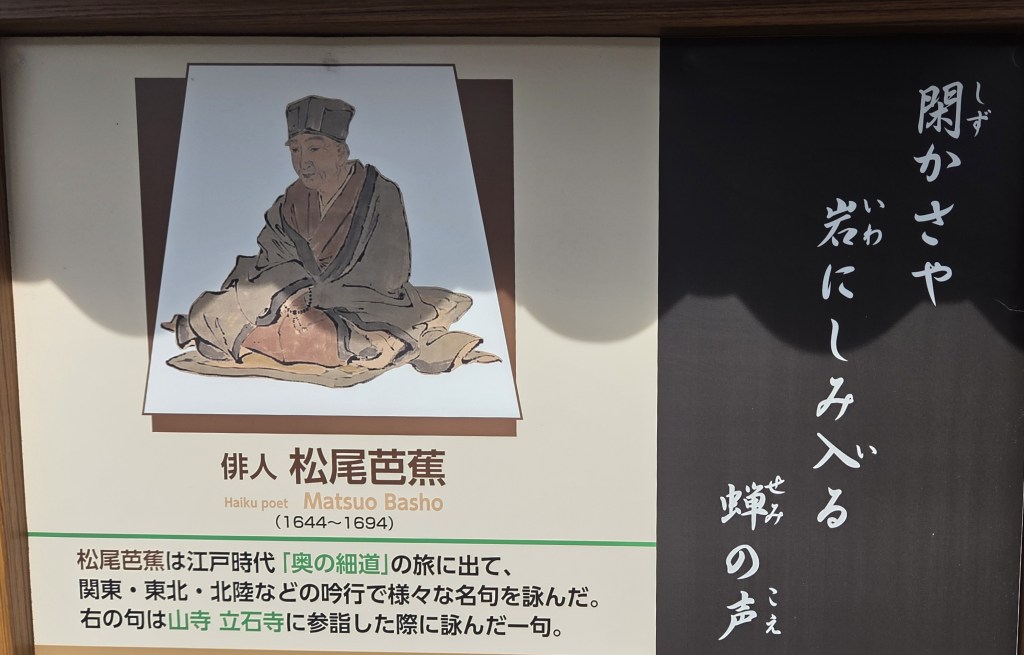 閑かさや
しず
岩にしみ入る
いわ
い
蝉の声
せみ
こえ
俳人 松尾芭蕉
Haiku poet Matsuo Basho
（1644〜1694）
松尾芭蕉は江戸時代「奥の細道」の旅に出て、
関東・東北・北陸などの吟行で様々な名句を詠んだ。
右の句は山寺 立石寺に参詣した際に詠んだ一句。